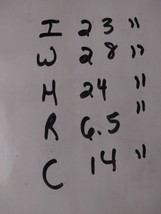 I 23 "
W 28 "
H 24 "
R 6.5 "
C 14 "